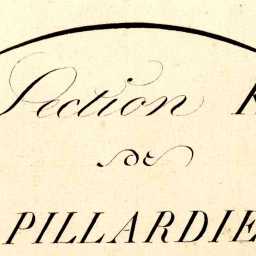 Section K
de
PILLARDIE